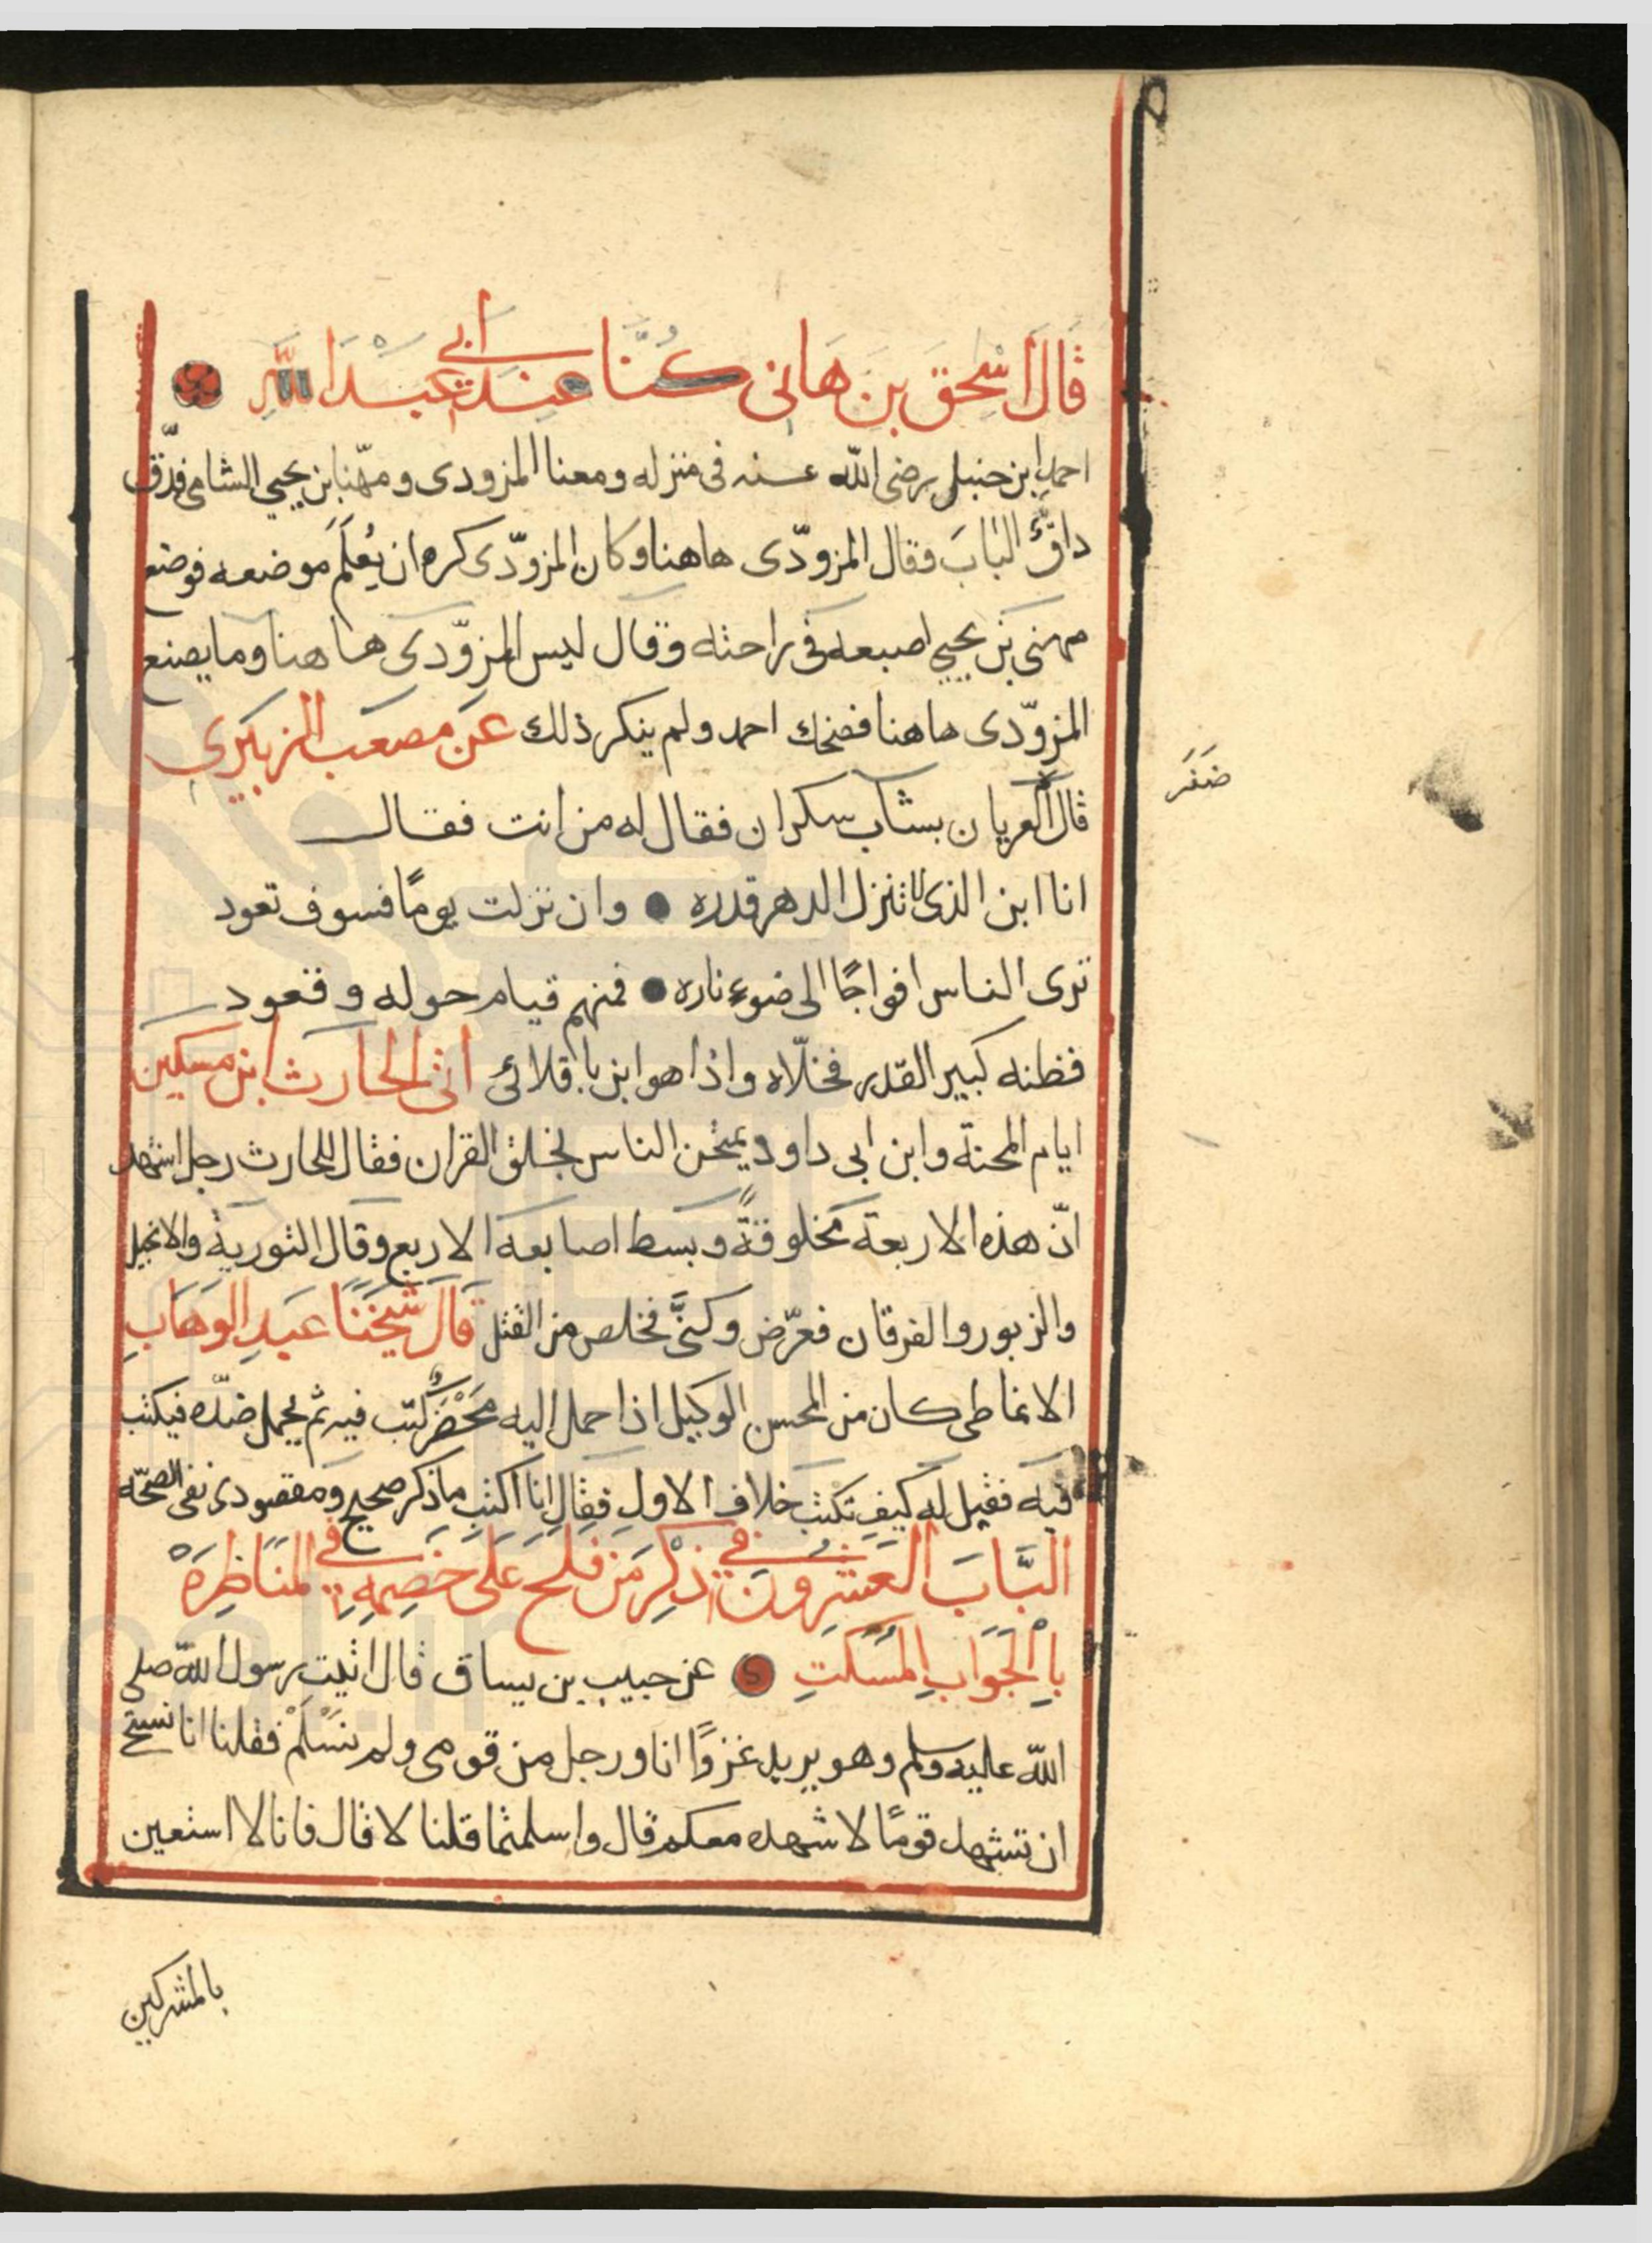 قَالَ اسْحٰقَ بنَ هَانى كُنَّا عِندَ ابي عَبْدَ اللّٰهِ
احمد ابن حنبل رضى الله عنه فى منزله ومعنا المزودى ومهّنا بن يحيي الشامى فدّق
داقٌّ البَابَ فقال المزودّى هاهنا وكان المزودّى كره ان يُعلَمَ موضعه فوضع
مهنى بن يحيي اصبعه فى راحته وقال ليس المزوّدى هاهنا وما يصنع
المزوّدى هاهنا فضحك احمد ولم ينكر ذلك عَن مصعَب الزبَيرى
قال العريان بشاب سكران فقال له من انت فقال
ضفر
انا ابن الذى لا تنزل الدهر قدره ● وان نزلت يومًا فسوف تعود
ترى الناس افواجًا الى ضوء ناره ● فمنهم قيام حوله وقعود
فظنه كبير القدر فخلّاه واذا هو ابن باقلائى اتى الحارث ابن مسكين
ايام المحنة وابن ابى داود يمتحن الناس بخلق القران فقال للحارث رجل اشهد
انّ هذه الاربعة مخلوقةً وبسط اصابعه الاربع وقال التورية والانجيل
والزبور والفرقان فعرّض وكنَّى فخلص من القتل قَالَ شَيخَنَا عَبدِ الوَهَابِ
الانماطى كان من المحسن الوكيل اذا حمل اليه مَحْضَرٌ كتب فيه ثم يحمل ضدّه فيكتب
فيه فقيل له كيف تكتب خلاف الاول فقال انا اكتب ما ذكر صحيح ومقصودى نفى الصحّه
البَّابَ العَشِرُونَ في ذِكْرِ مَن فلحَ عَلى خَصِمهِ في المنَاظِرَهْ
بِاْلجَوَابِ المُسَكتِ عن حبيب بن يساق قال اتيت رسول الله صلى
الله عليه وسلم وهو يريد غزوًا انا ورجل من قومى ولم نسْلَمْ فقلنا انا نستحى
ان تشهد قومًا لا شهده معكم قال واسلمتما قلنا لا قال فانا لا استعين
بالمشركين